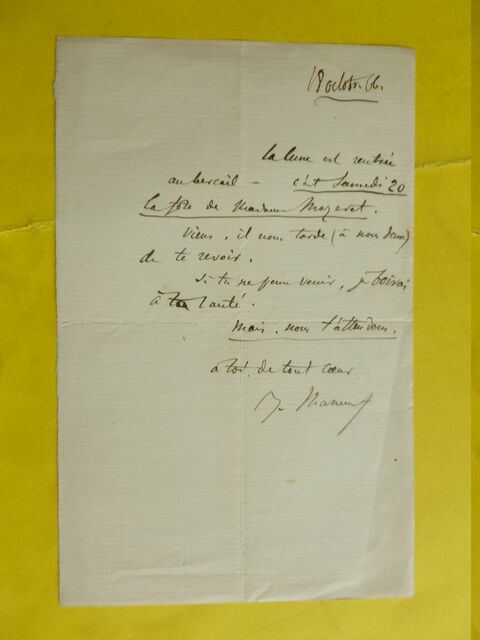 18 octobr. 66.
La lune est rentrée
au bercail — c'est Samedi 20
la fête de Madame Mazeret.
Viens, il nous tarde (à nous deux)
de te revoir.
Si tu ne peux venir, je boirai
à ta santé.
Mais, nous t'attendons.
à toi, de tout cœur